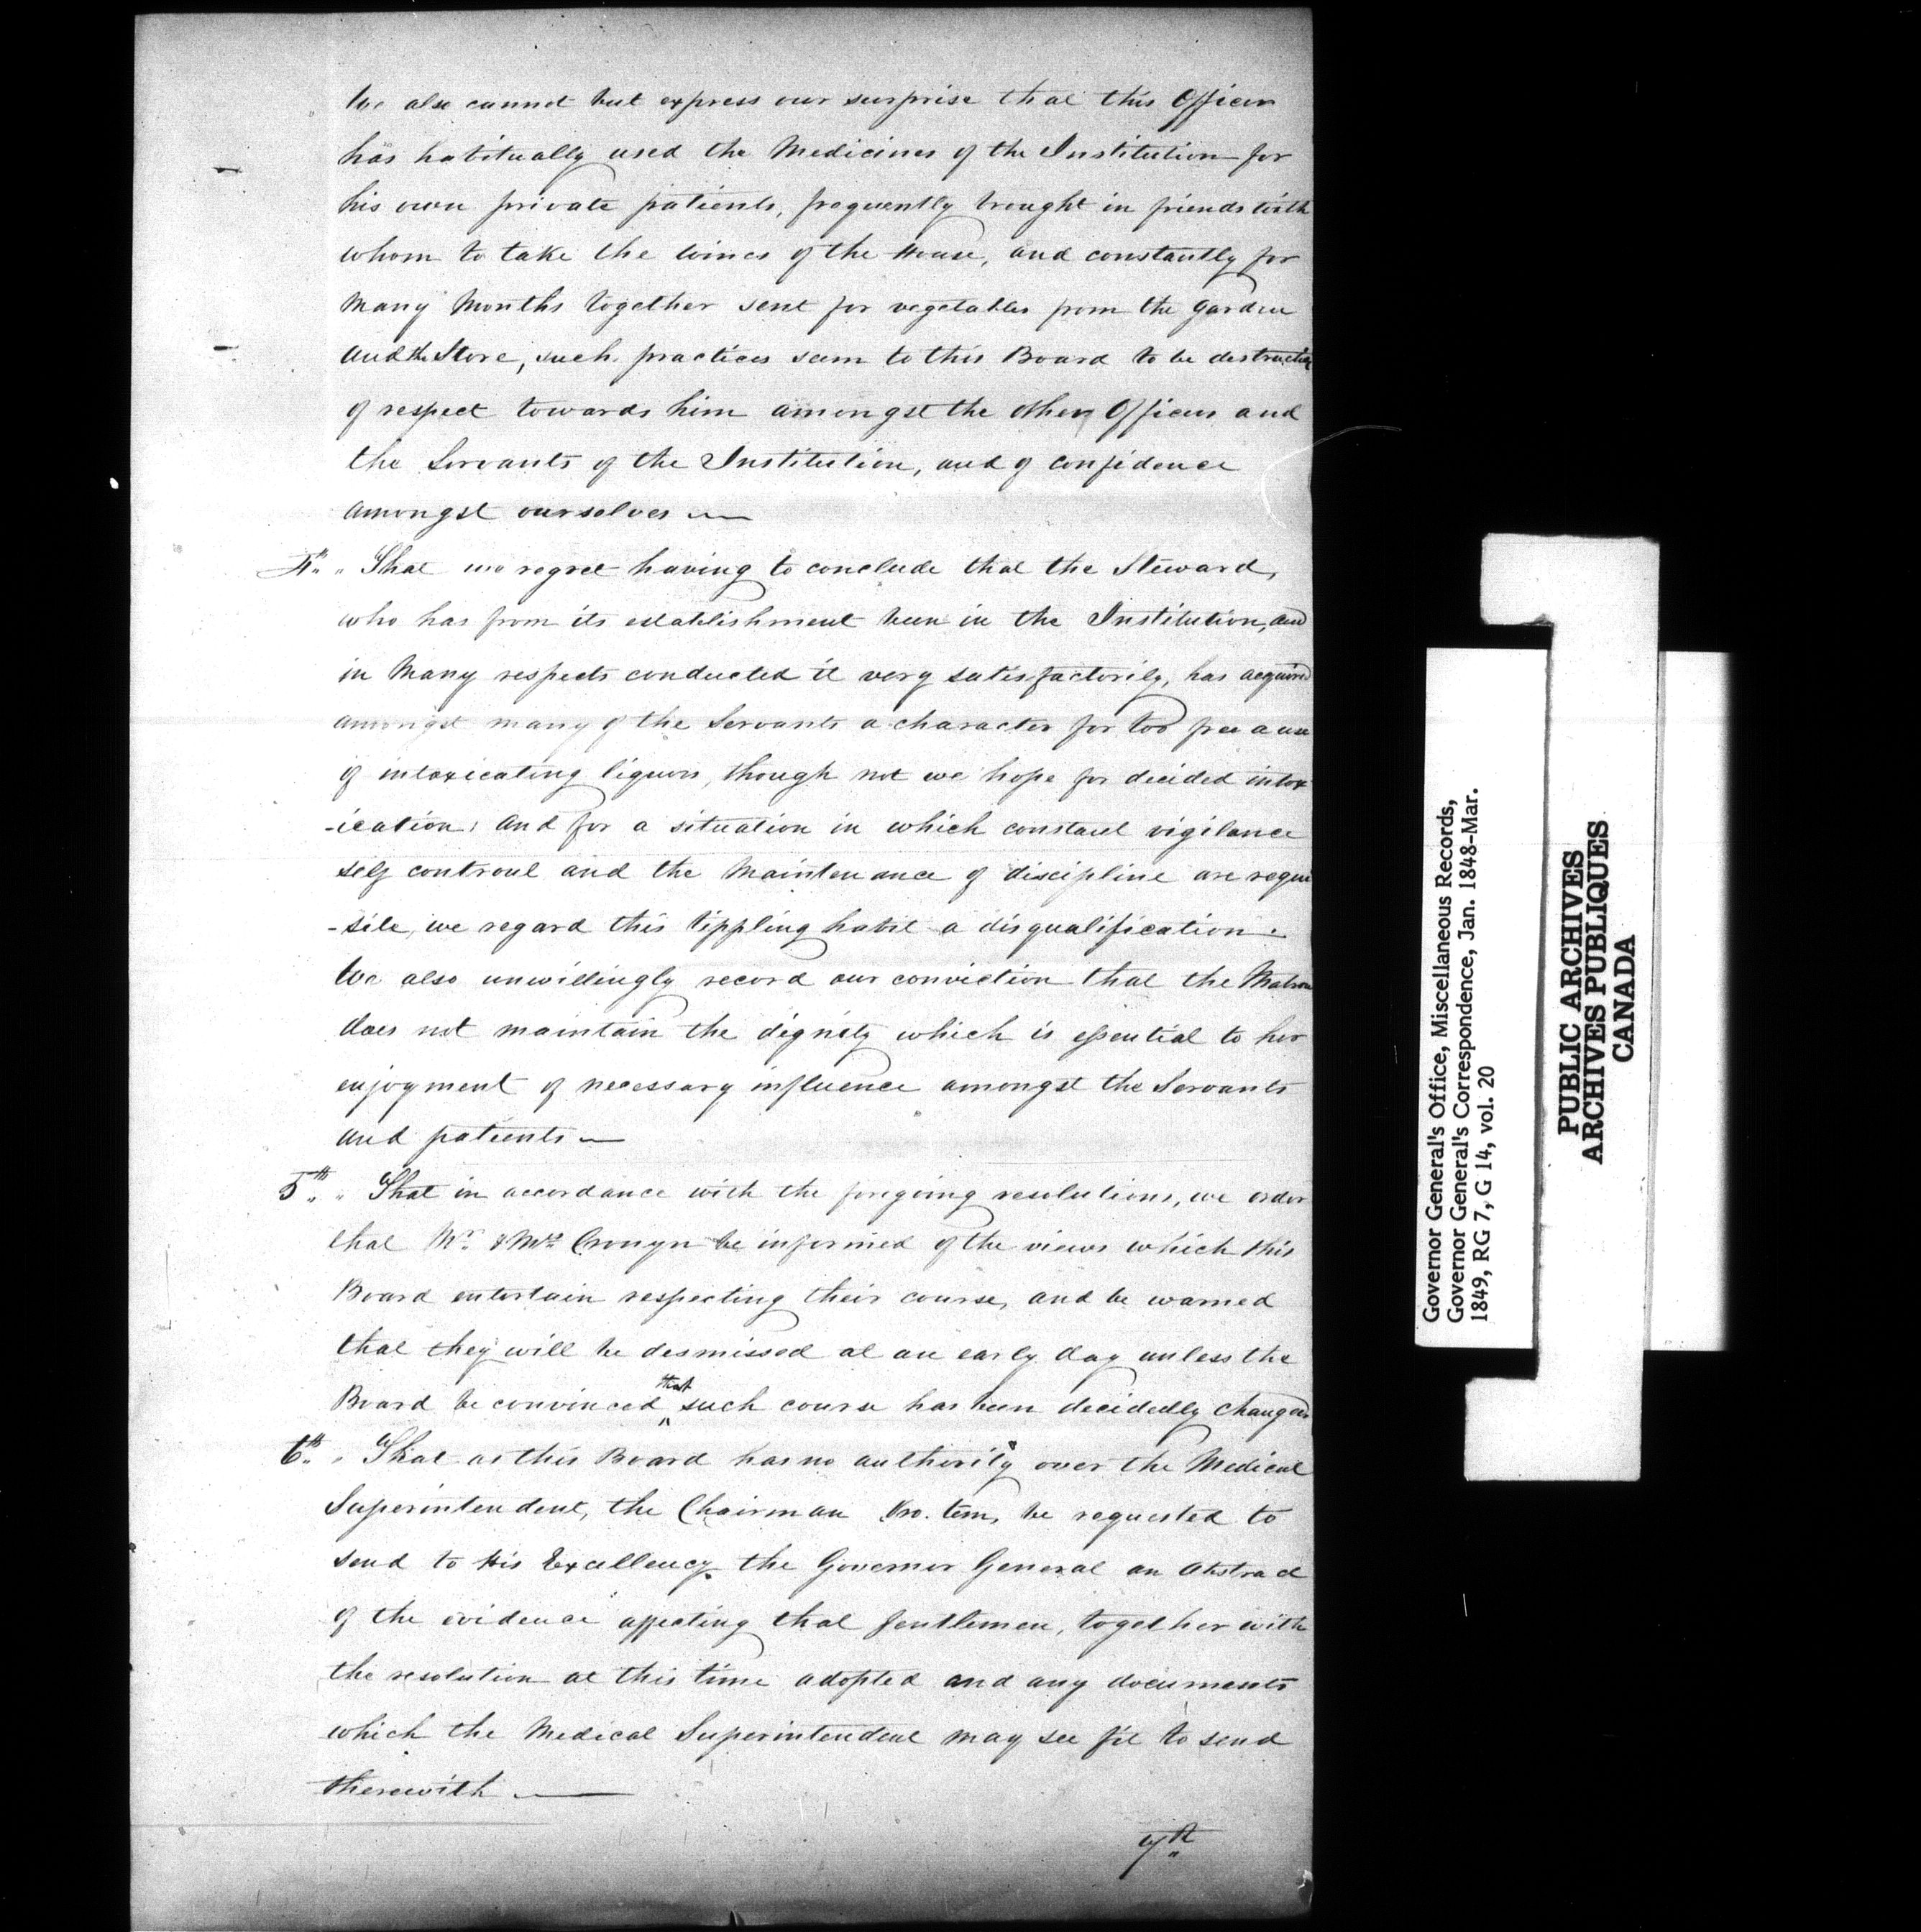 We also cannot but express our surprise that this Officer
has habitually used the Medicines of the Institution for
his own private patients, frequently brought in friends with
whom to take the wines of the House, and constantly for
many months together sent for vegetables from the garden
and the Store, such practices seem to this Board to be destructive
of respect towards him amongst the other Officers and
the Servants of the Institution, and of confidence
amongst ourselves —
4th " That we regret having to conclude that the Steward,
who has from its establishment been in the Institution, and
in many respects conducted it very satisfactorily, has acquired
amongst many of the Servants a character for too free a use
of intoxicating liquors, though not we hope for decided intox
-ication; and for a situation in which constant vigilance
self controul and the maintenance of discipline are requi
-site, we regard this tippling habit a disqualification.
We also unwillingly record our conviction that the Matron
does not maintain the dignity which is essential to her
enjoyment of necessary influence amongst the Servants
and patients —
5th " That in accordance with the foregoing resolutions, we order
that Mr. & Mrs. Cronyn be informed of the views which this
Board entertain respecting their course, and be warned
that they will be desmissed at an early day unless the
Board be convinced that such course has been decidedly changed
6th " That as this Board has no authority over the Medical
Superintendent, the Chairman Pro. tem, be requested to
send to His Excellency the Governor General an Abstract
of the evidence affecting that Gentlemen, together with
the resolution at this time adopted and any documents
which the Medical Superintendent may see fit to send
therewith —
7th
Governor General's Office, Miscellaneous Records,
Governor General's Correspondence, Jan. 1848-Mar.
1849, RG 7, G 14, vol. 20
PUBLIC ARCHIVES
ARCHIVES PUBLIQUES
CANADA